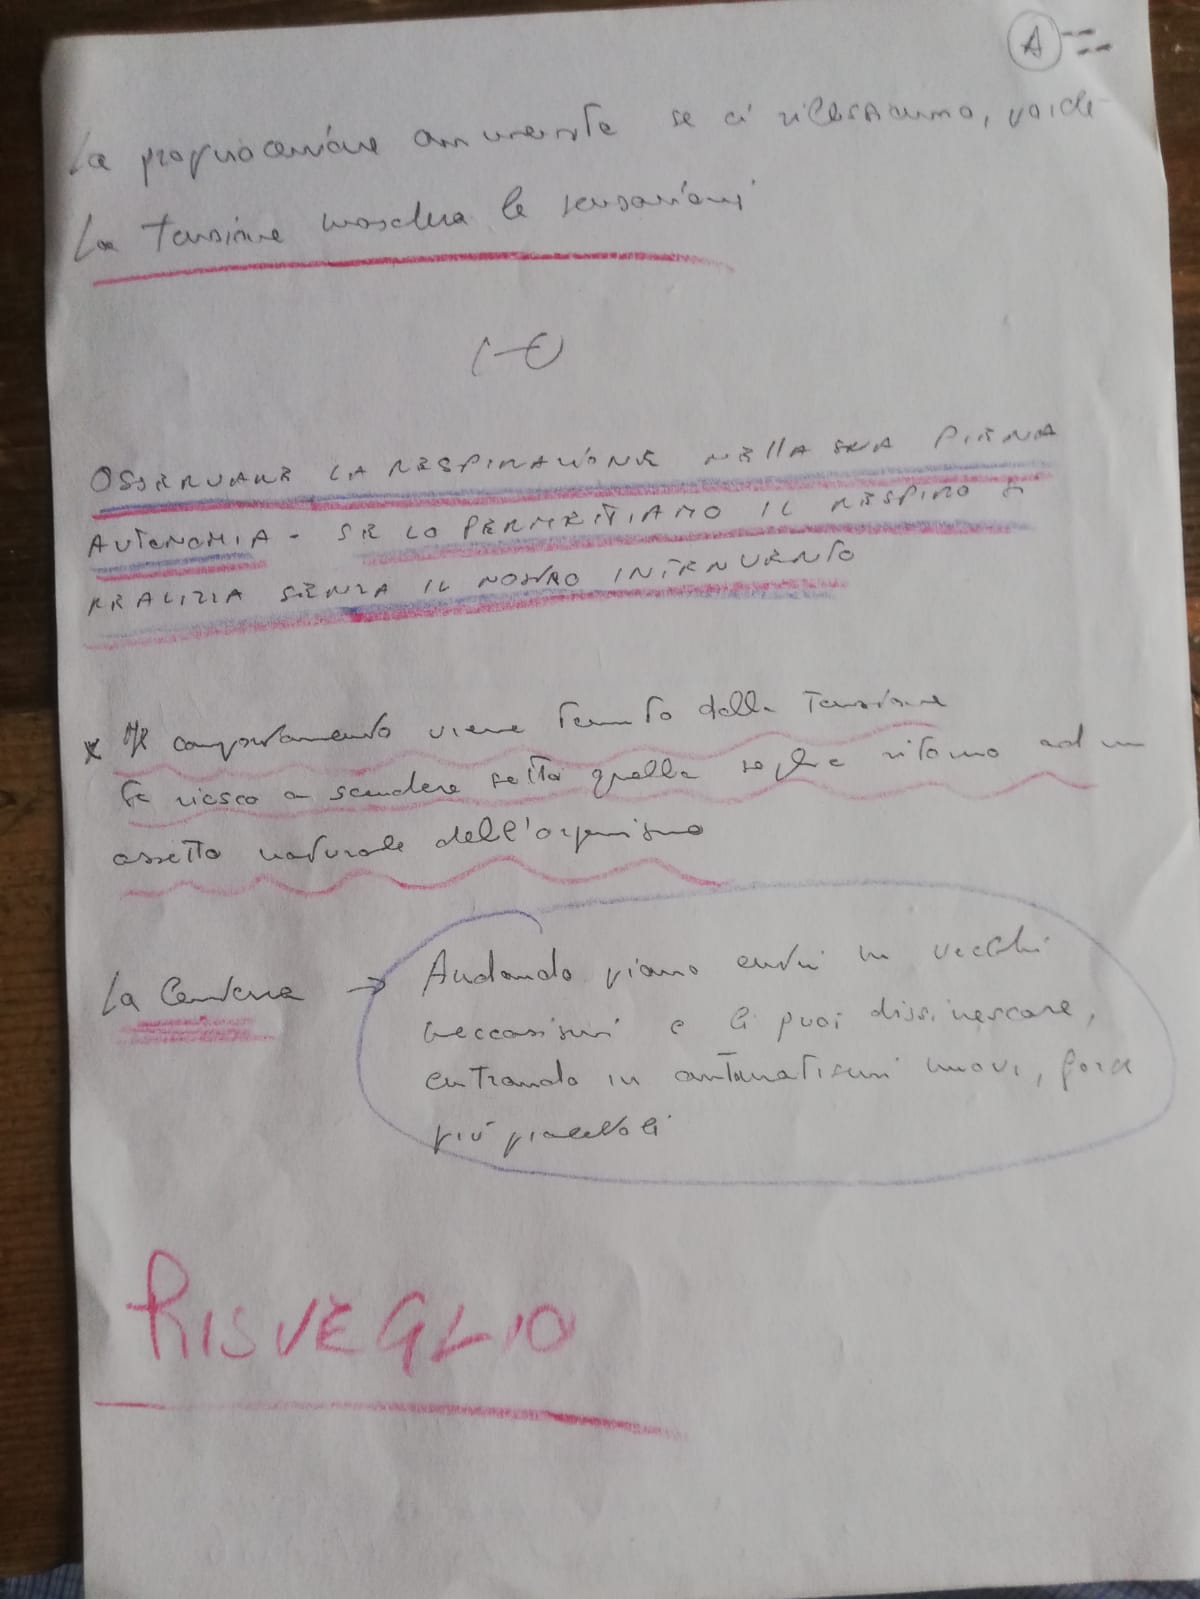 A
La propriocezione aumenta se ci rilassiamo, poiché
La tensione maschera le sensazioni
OSSERVARE LA RESPIRAZIONE NELLA SUA PIENA
AUTONOMIA - SE LO PERMETTIAMO IL RESPIRO SI
REALIZZA SENZA IL NOSTRO INTERVENTO
* Il comportamento viene tenuto dalla tensione
Se riesco a scendere sotto quella soglia ritorno ad un
assetto naturale dell'organismo
La lentezza → Andando piano entri in vecchi
meccanismi e li puoi disinnescare,
entrando in automatismi nuovi, forse
più piacevoli
RISVEGLIO